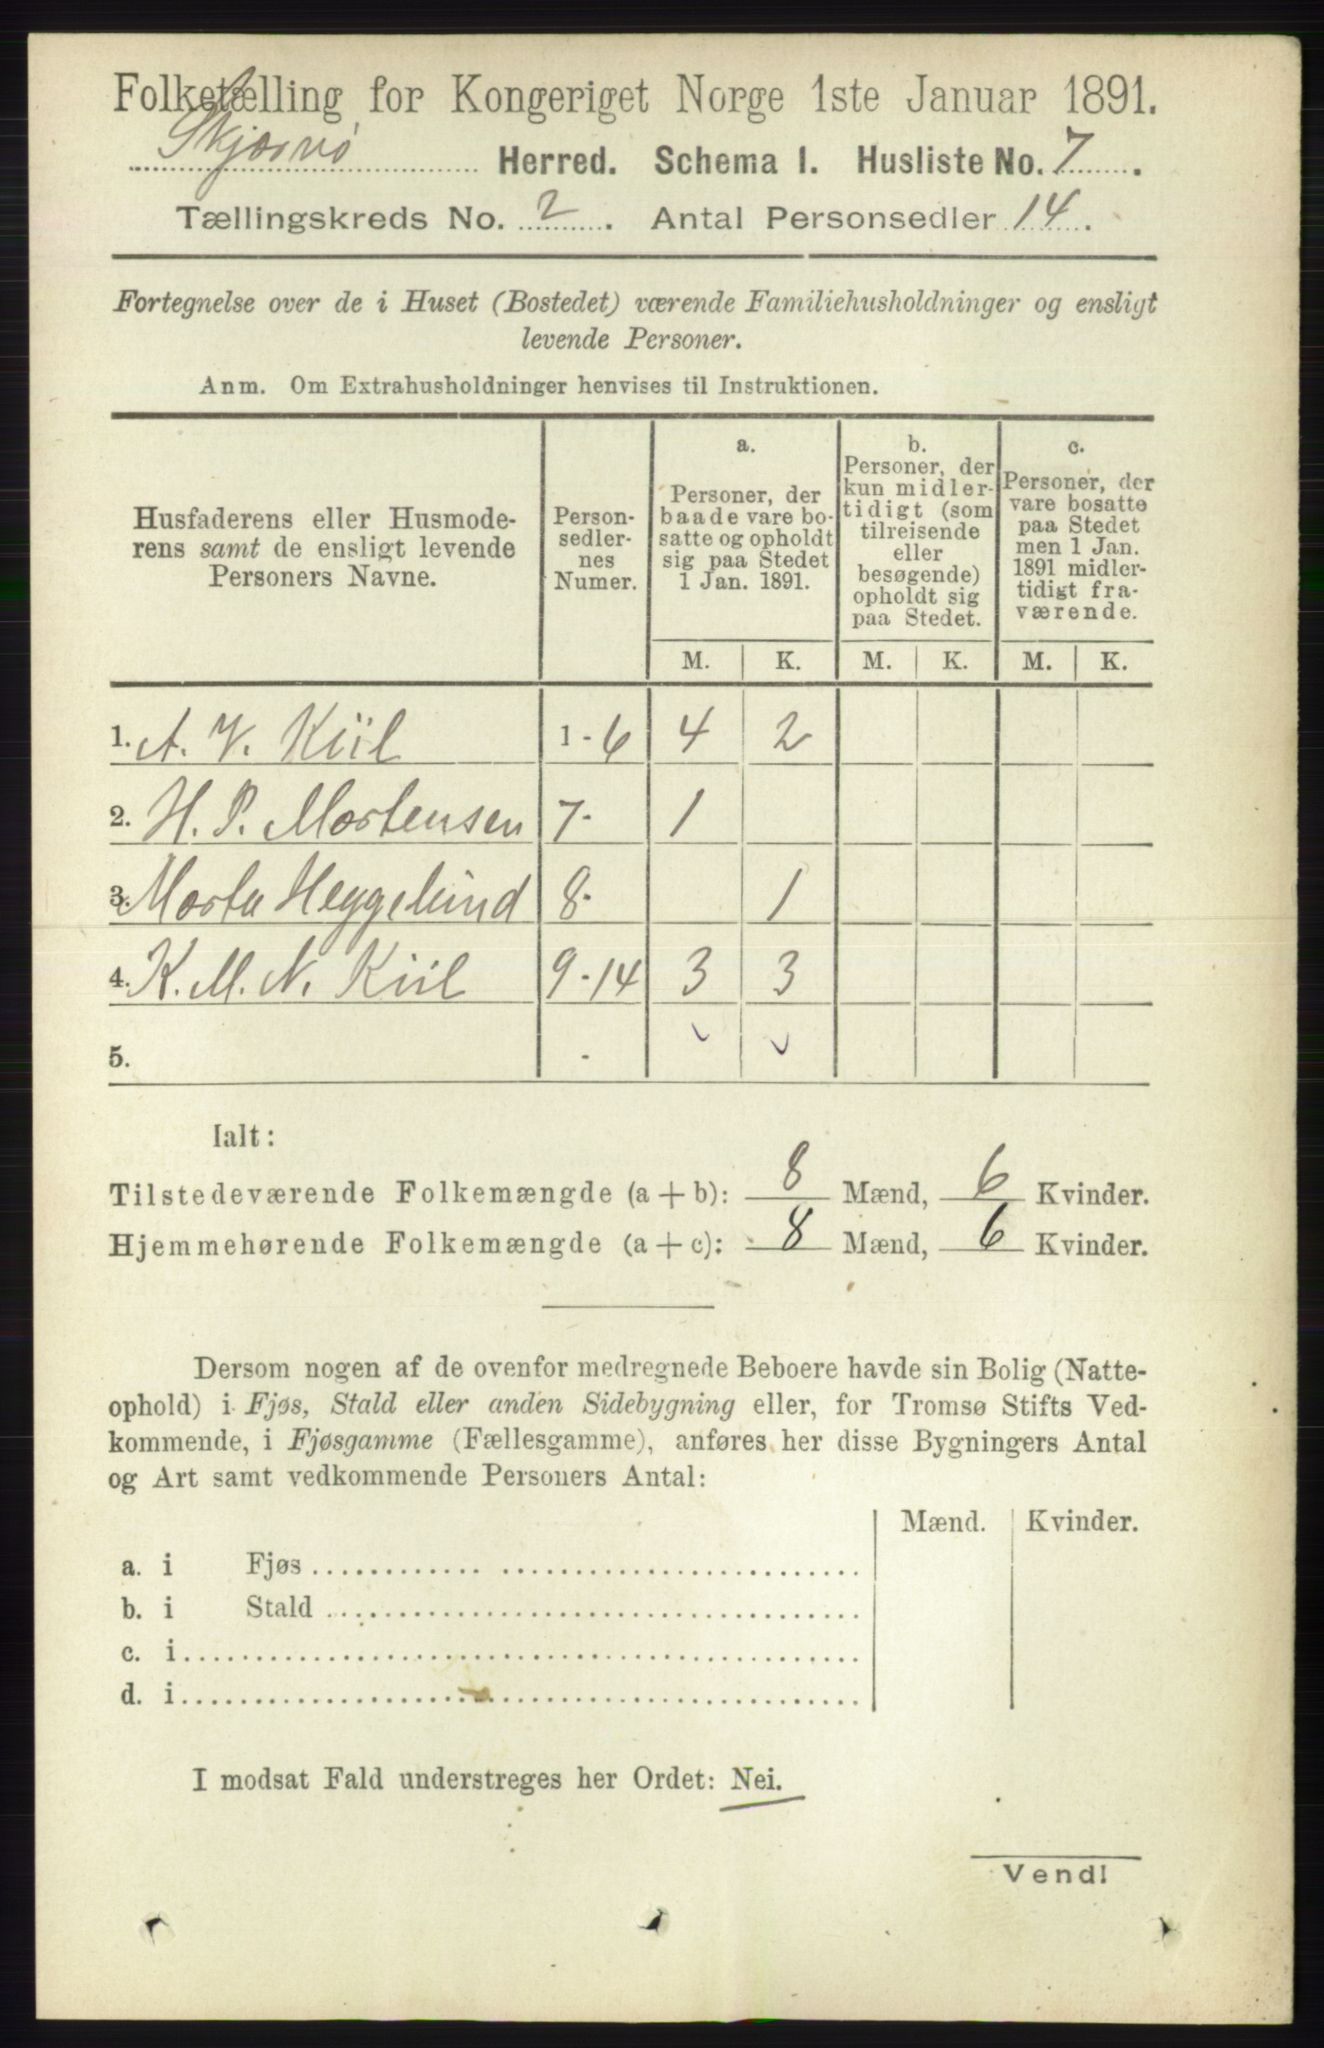 Folketælling for Kongeriget Norge 1ste Januar 1891.
Skjærvø Herred. Schema 1. Husliste No. 7.
Tællingskreds No. 2. Antal Personsedler 14.
Fortegnelse over de i Huset (Bostedet) værende Familiehusholdninger og ensligt
levende Personer.
Anm. Om Extrahusholdninger henvises til Instruktionen.
Husfaderens eller Husmode-
rens samt de ensligt levende
Personers Navne.
Person-
sedler-
nes
Numer.
a.
Personer, der
baade vare bo-
satte og opholdt
sig paa Stedet
1 Jan. 1891.
b.
Personer, der
kun midler-
tidigt (som
tilreisende
eller
besøgende)
opholdt sig
paa Stedet.
c.
Personer, der
vare bosatte
paa Stedet
men 1 Jan.
1891 midler-
tidigt fra-
værende.
M. K. M. K. M. K.
1. A. V. Kiil 1-6 4 2
2. H. P. Mortensen 7- 1
3. Marta Heggelund 8- 1
4. K. M. N. Kiil 9-14 3 3
5. -
Ialt:
Tilstedeværende Folkemængde (a + b): 8 Mænd, 6 Kvinder.
Hjemmehørende Folkemængde (a + c): 8 Mænd, 6 Kvinder.
Dersom nogen af de ovenfor medregnede Beboere havde sin Bolig (Natte-
ophold) i Fjøs, Stald eller anden Sidebygning eller, for Tromsø Stifts Ved-
kommende, i Fjøsgamme (Fællesgamme), anføres her disse Bygningers Antal
og Art samt vedkommende Personers Antal:
Mænd. Kvinder.
a. i Fjøs
b. i Stald
c. i
d. i
I modsat Fald understreges her Ordet: Nei.
Vend!